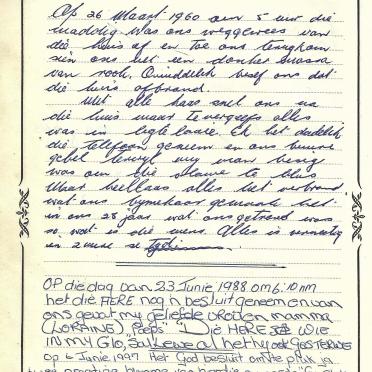 Op 26 Maart 1960 om 5 uur die
middag was ons weggewees van
die huis af en toe ons terugkom
sien ons net een donker swaar
van rook. Onmiddelik besef ons dat
die huis afbrand.
Met alle haas snel ons na
die huis maar tevergeefs alles
was in ligte laaie. Ek het dadelik
die telefoon geneem en ons bure
gebel terwyl my man besig
was om die vlamme te blus
Maar helaas alles het verbrand
wat ons bymekaar gemaak het
in ons 28 jaar wat ons getroud was
so wat is die mens. Alles is
en
OP die dag van 23 Junie 1988 om 6:10 nm
het die HERE nog 'n besluit geneem en van
ons gevat my geliefde mamma
(LORAINE) "Poeps" Die HERE sê WIE
IN MY GLO, SAL LEWE al het hy ook GESTERWE
op 6 Junie 1997 Het God besluit om te pluk